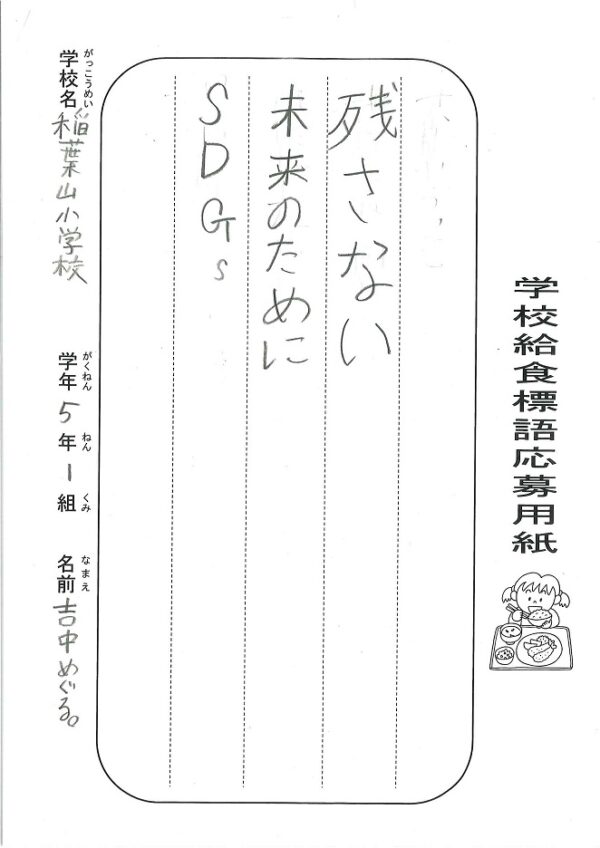 学校給食標語応募用紙
残さない
未来のために
SDGs
学校名 稲葉山小学校 学年 5年 1組 名前 吉中めぐる。
がっこうめい がくねん ねん くみ なまえ